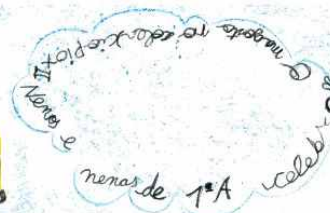 Nenos e
nenas de 1ªA
celeb
o magosto no colexio pio XII